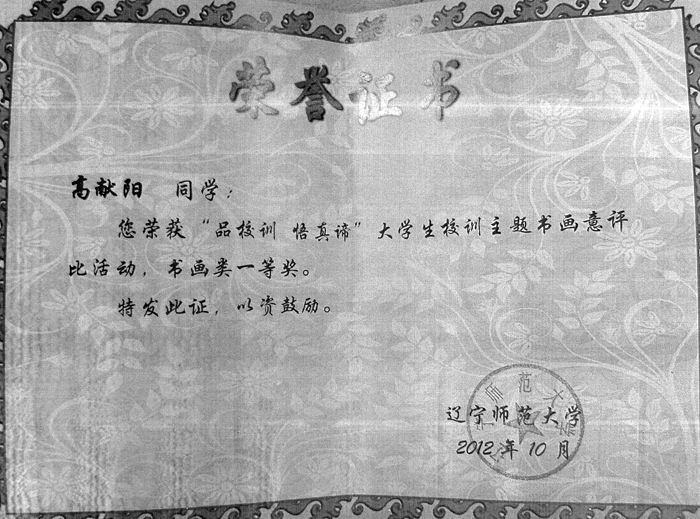 荣誉证书
高献阳 同学：
您荣获“品校训 悟真谛”大学生校训主题书画意评
比活动，书画类一等奖。
特发此证，以资鼓励。
辽宁师范大学
2012年10月